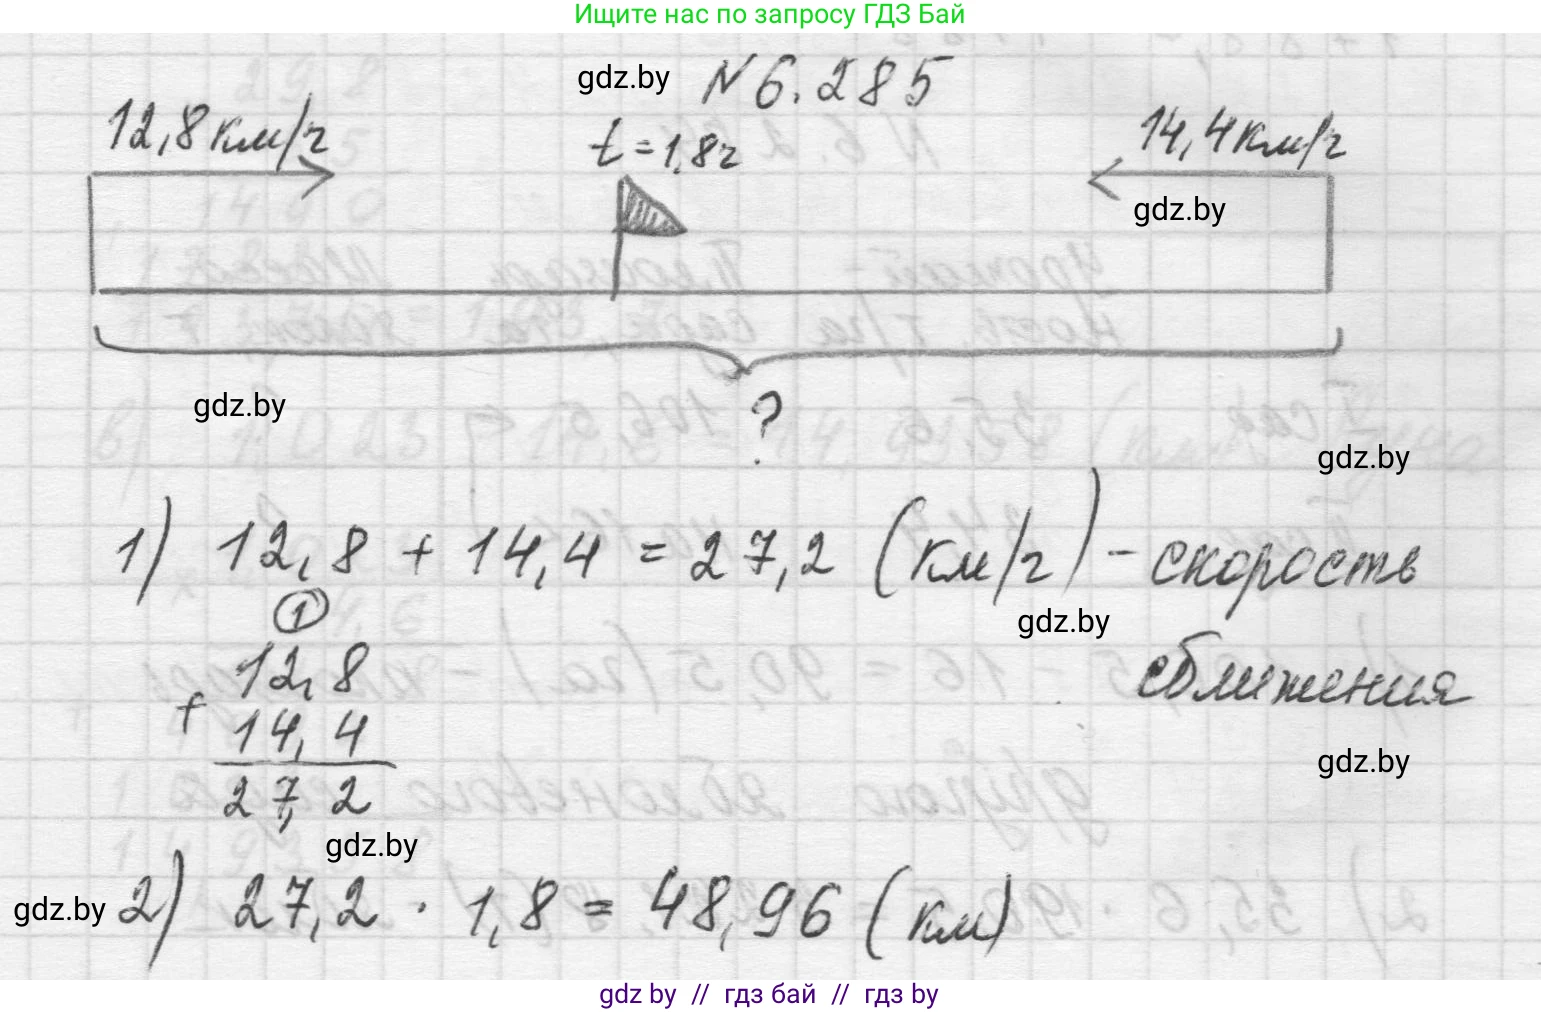 Ищите нас по запросу ГДЗ Бай
gdz.by N 6.285
12,8 км/ч t = 1,8 ч 14,4 км/ч
gdz.by
gdz.by ?
gdz.by
1) 12,8 + 14,4 = 27,2 (км/ч) - скорость
gdz.by
сближения
1
12,8
+
14,4
27,2
gdz.by
gdz.by
gdz.by 2) 27,2 · 1,8 = 48,96 (км)
gdz by // гдз бай // гдз by